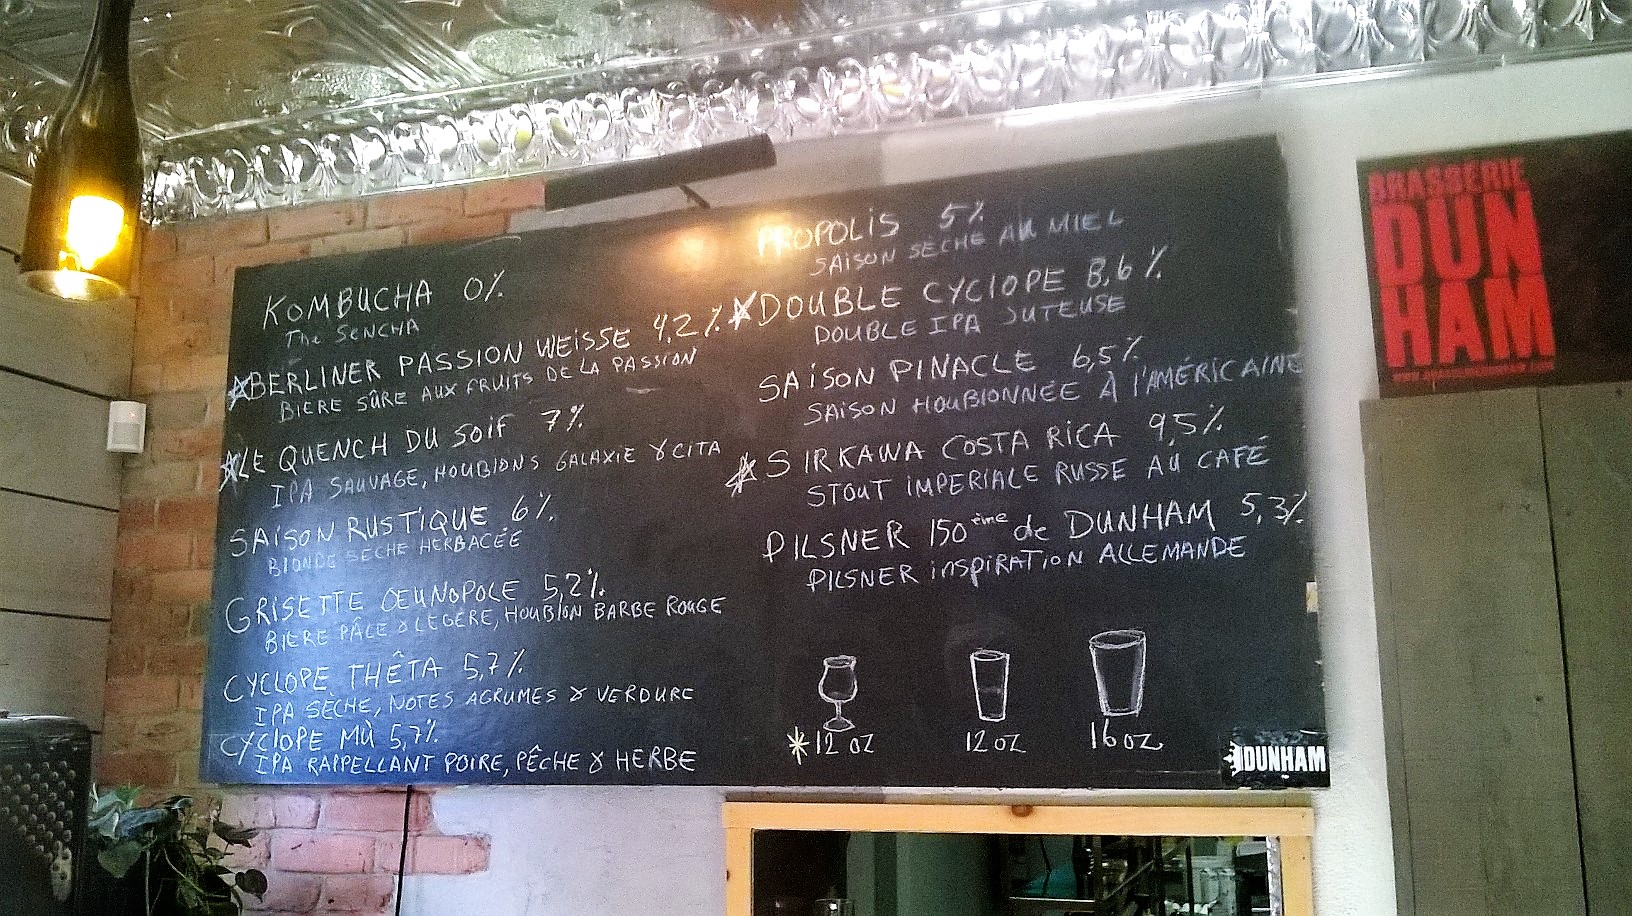 KOMBUCHA 0%
Thé SENCHA
*BERLINER PASSION WEISSE 4,2%
BIÈRE SÛRE AUX FRUITS DE LA PASSION
*LE QUENCH DU SOIF 7%
IPA SAUVAGE, HOUBLONS GALAXIE & CITA
SAISON RUSTIQUE 6%
BLONDE SÈCHE HERBACÉE
GRISETTE OEUNOPOLE 5,2%
BIÈRE PÂLE & LÉGÈRE, HOUBLON BARBE ROUGE
CYCLOPE THÊTA 5,7%
IPA SÈCHE, NOTES AGRUMES & VERDURE
CYCLOPE MÙ 5,7%
IPA RAPPELLANT POIRE, PÊCHE & HERBE
PROPOLIS 5%
SAISON SÈCHE AU MIEL
*DOUBLE CYCLOPE 8,6%
DOUBLE IPA JUTEUSE
SAISON PINACLE 6,5%
SAISON HOUBLONNÉE À l'AMÉRICAINE
*SIRKAWA COSTA RICA 9,5%
STOUT IMPERIALE RUSSE AU CAFÉ
PILSNER 150ème de DUNHAM 5,3%
PILSNER inspiration ALLEMANDE
*12 oz
12 oz
16 oz
DUNHAM
BRASSERIE
DUN
HAM